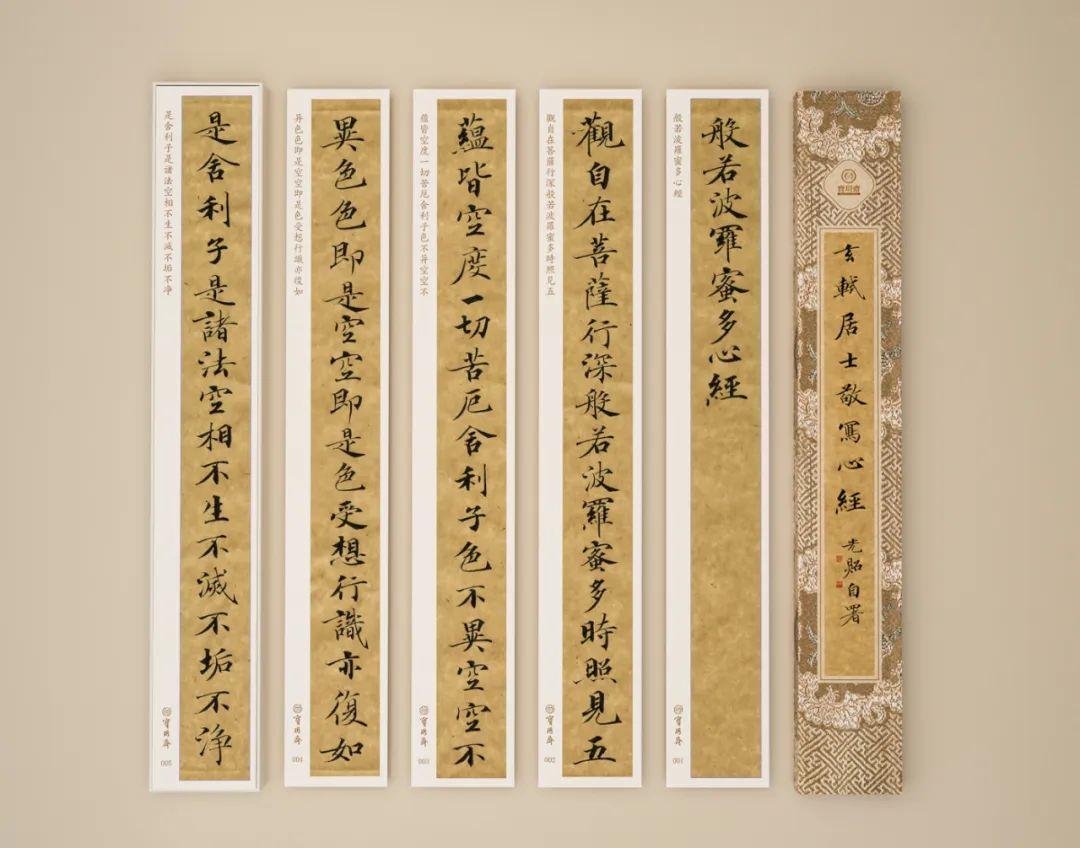 玄軾居士敬寫心經
自署
般若波羅蜜多心經
般若波羅蜜多心經
001
觀自在菩薩行深般若波羅蜜多時照見五
觀自在菩薩行深般若波羅蜜多時照見五
002
蘊皆空度一切苦厄舍利子色不異空空不
蘊皆空度一切苦厄舍利子色不异空空不
003
異色色即是空空即是色受想行識亦復如
异色色即是空空即是色受想行識亦復如
004
是舍利子是諸法空相不生不滅不垢不淨
是舍利子是諸法空相不生不滅不垢不净
005